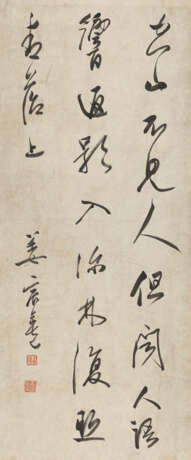 空山不見人但聞人語
響返景入深林復照
青苔上
姜宸英